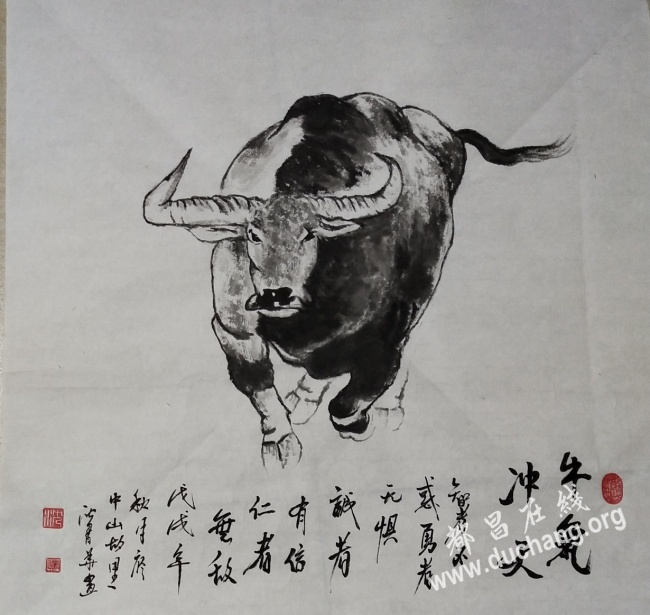 牛氣
冲天
智者不
惑勇者
无惧
誠者
有信
仁者
無敌
戊戌年
秋月於
中山故里
都昌在线
www.duchang.org